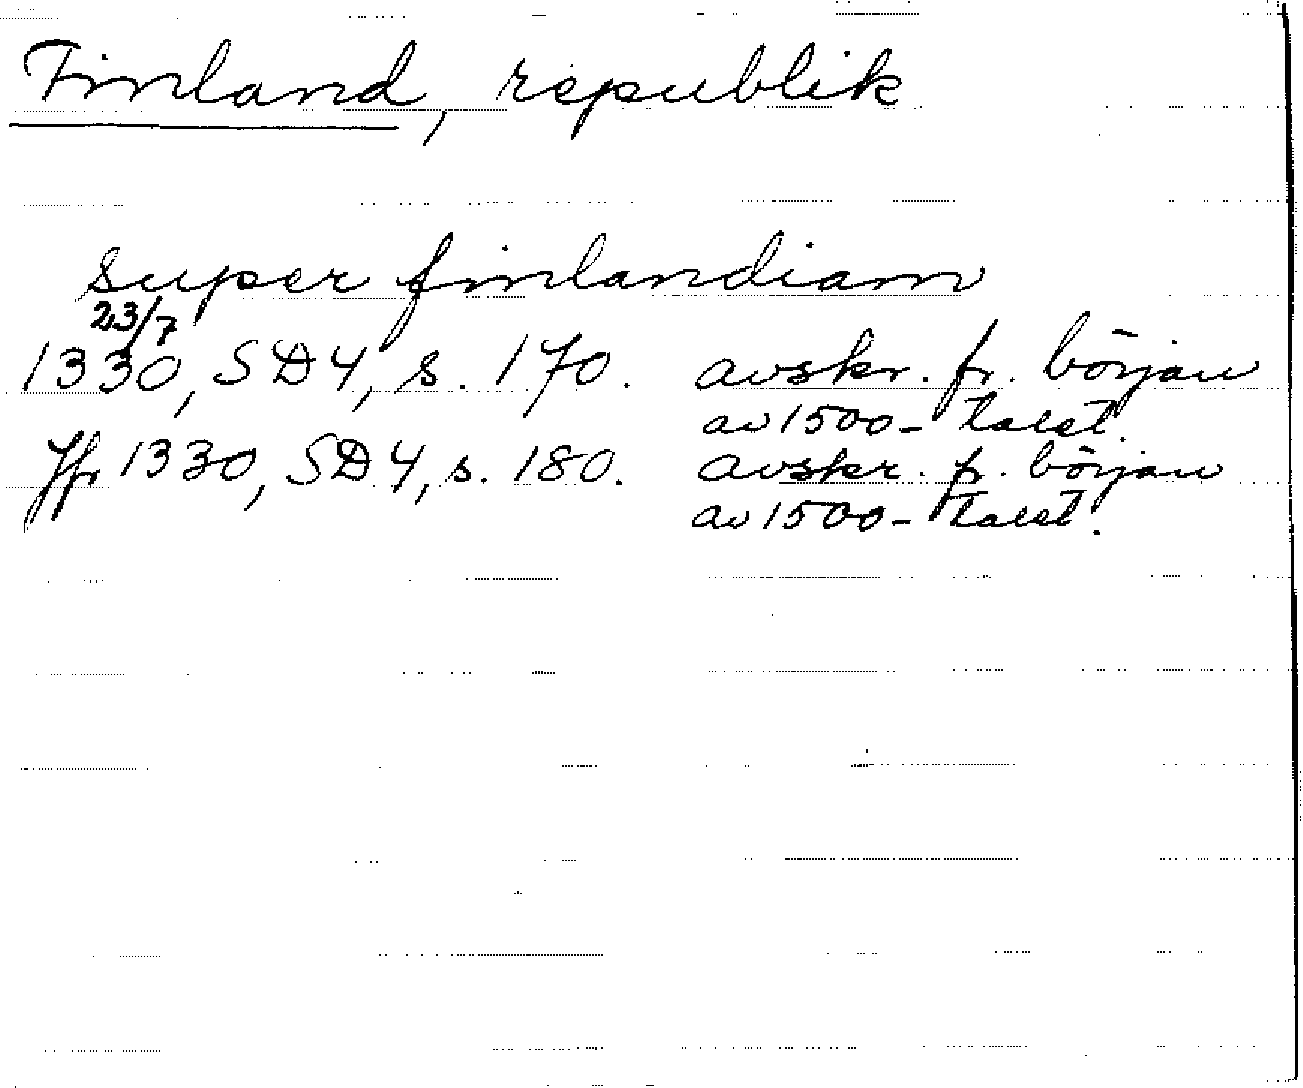 Finland, republik
super finlandiam
23/7
1330, SD4, s. 170. avskr. fr. början
av 1500-talet.
Jfr 1330, SD4, s. 180. avskr. fr. början
av 1500-talet.